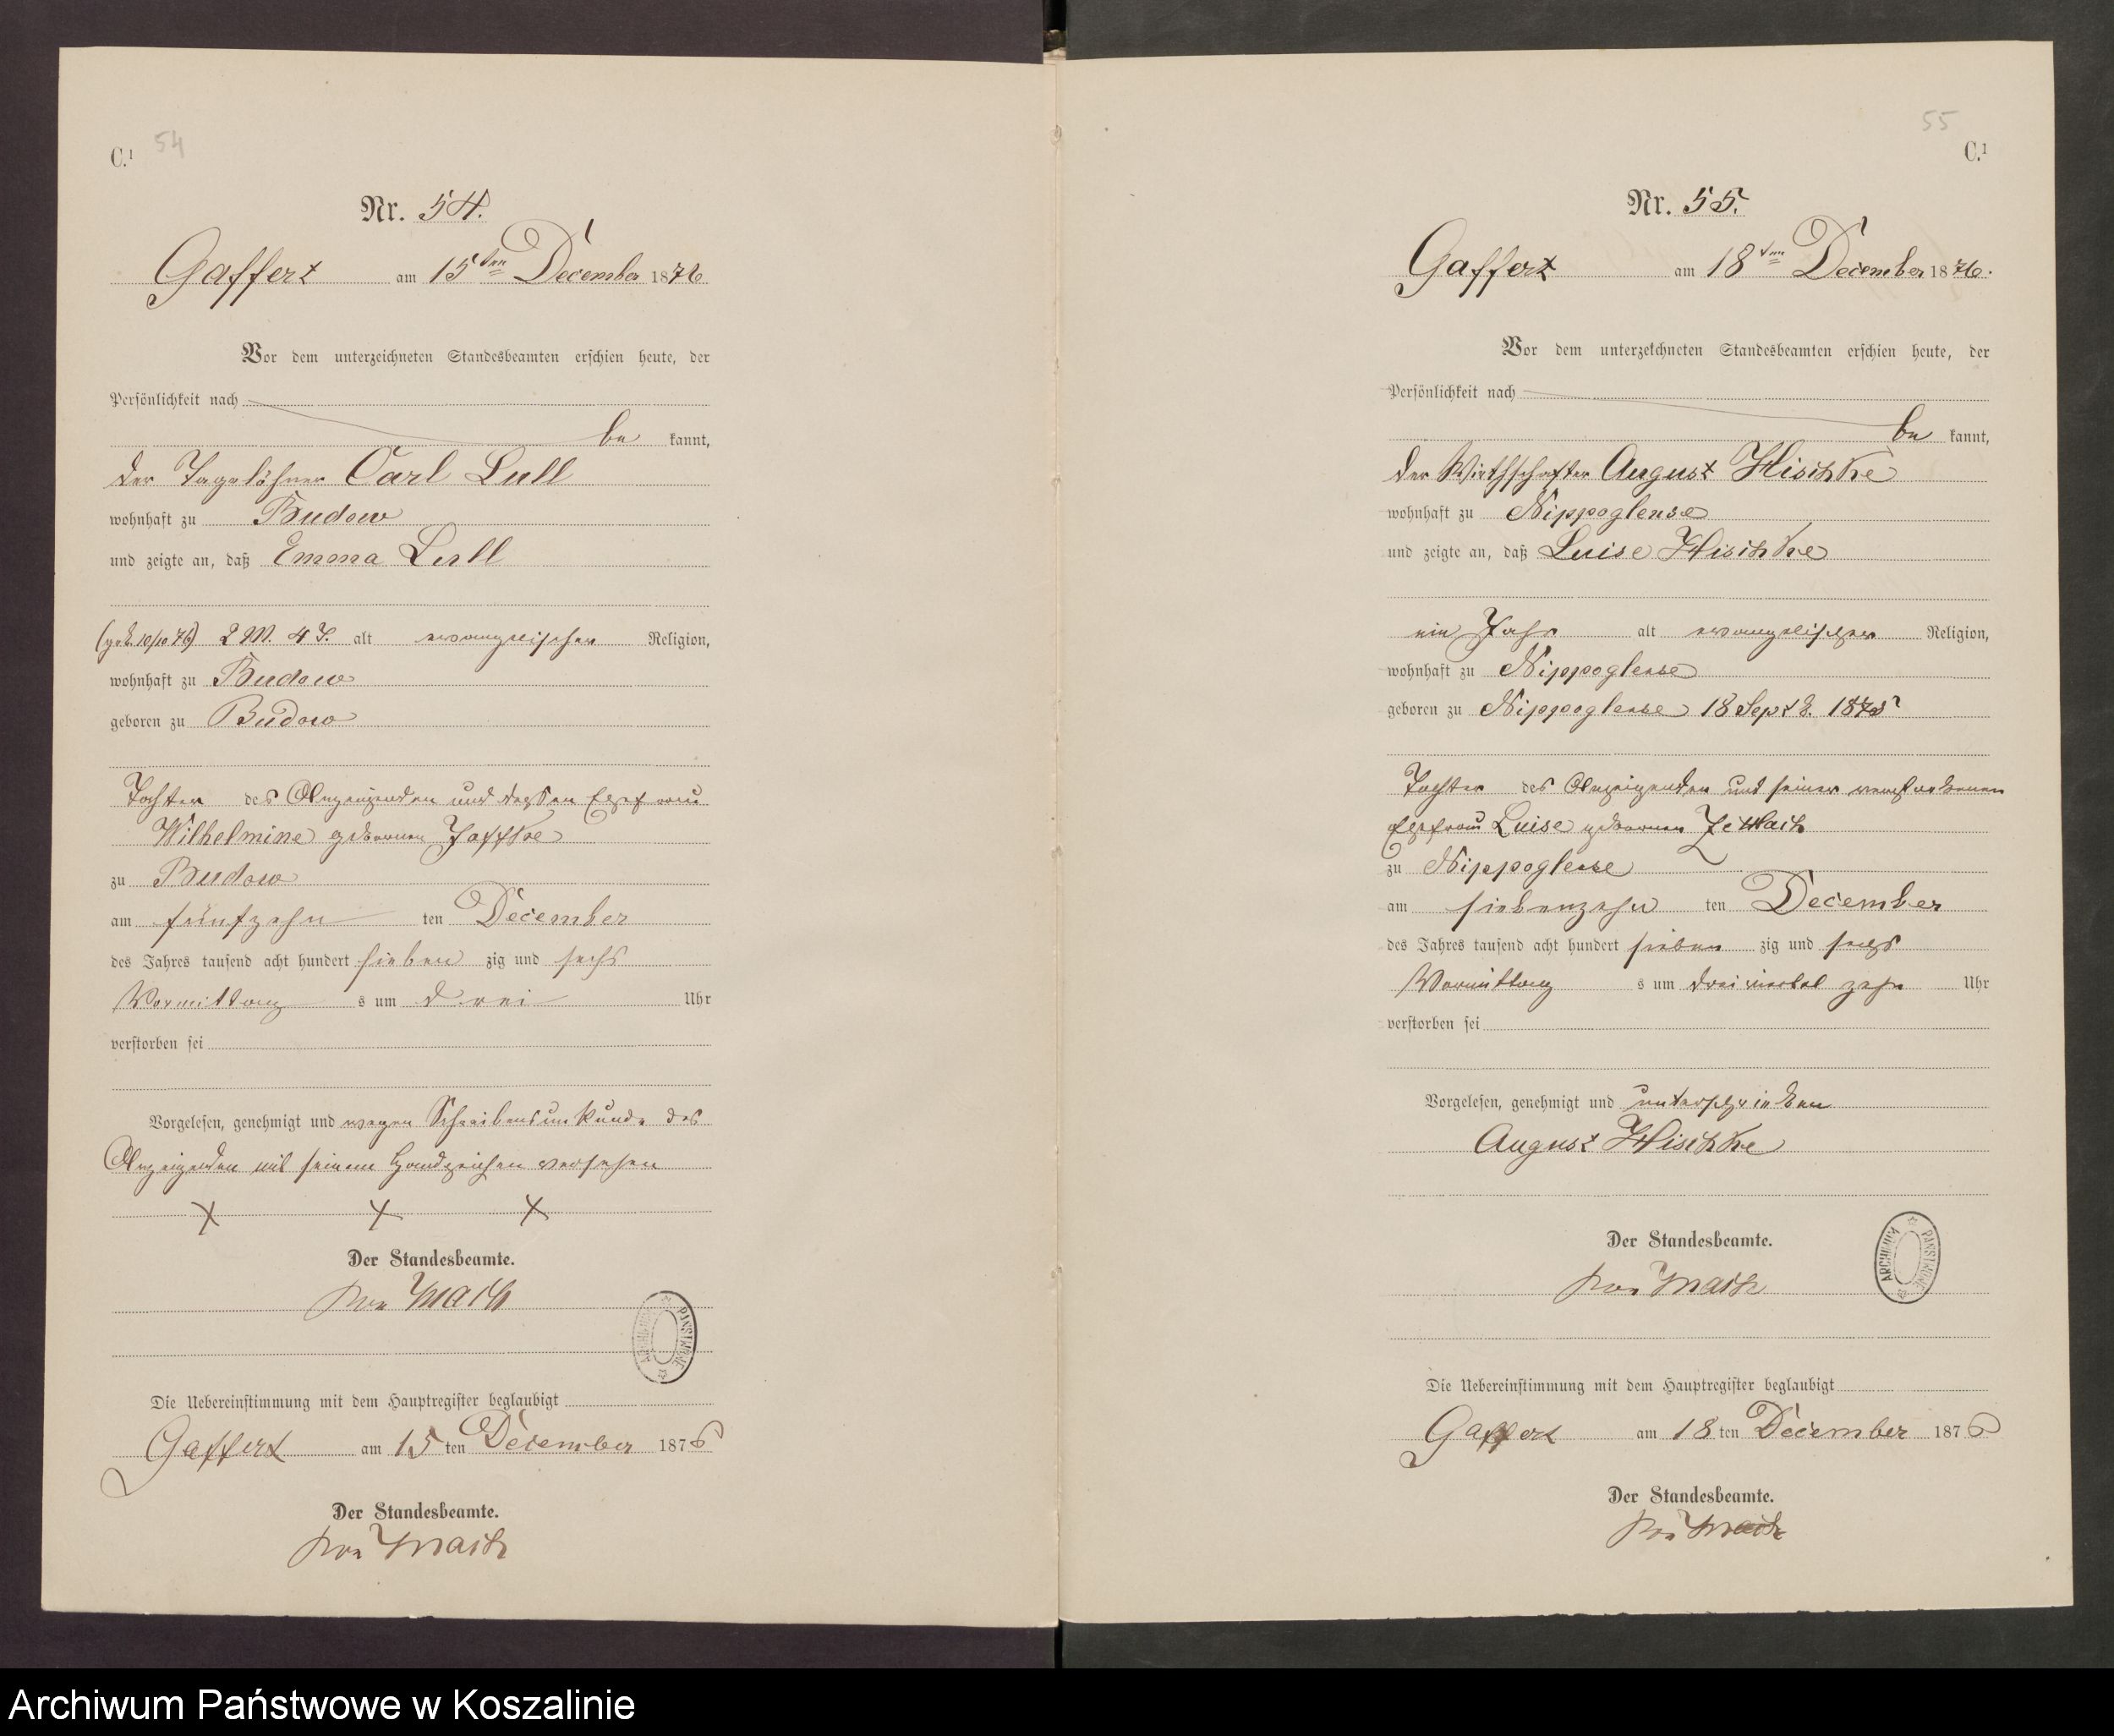 C.¹ 54
Nr. 54.
Gaffert am 15ten December 1876
Vor dem unterzeichneten Standesbeamten erschien heute, der
Persönlichkeit nach
be kannt,
der Tagelöhner Carl Lull
wohnhaft zu Budow
und zeigte an, daß Emma Lull
(geb. 10/10 76) 2 M. 4 T. alt evangelischer Religion,
wohnhaft zu Budow
geboren zu Budow
Tochter des Anzeigenden und dessen Ehefrau
Wilhelmine geborenen Jaffke
zu Budow
am fünfzehn ten December
des Jahres tausend acht hundert sieben zig und sechs
Vormittag s um drei Uhr
verstorben sei
Vorgelesen, genehmigt und wegen Schreibensunkunde des
Anzeigenden mit seinem Handzeichen versehen
X X X
Der Standesbeamte.
von Mach
ARCHIWUM PAŃSTWOWE
Die Uebereinstimmung mit dem Hauptregister beglaubigt
Gaffert am 15 ten December 1876
Der Standesbeamte.
von Mach
55
C.¹
Nr. 55.
Gaffert am 18ten December 1876.
Vor dem unterzeichneten Standesbeamten erschien heute, der
Persönlichkeit nach
be kannt,
der Wirthschafter August Hischke
wohnhaft zu Nippoglense
und zeigte an, daß Luise Hischke
ein Jahr alt evangelischer Religion,
wohnhaft zu Nippoglense
geboren zu Nippoglense 18 Septb. 1875
Tochter des Anzeigenden und seiner verstorbenen
Ehefrau Luise geborenen
zu Nippoglense
am siebenzehn ten December
des Jahres tausend acht hundert sieben zig und sechs
Vormittag s um dreiviertel zehn Uhr
verstorben sei
Vorgelesen, genehmigt und unterschrieben
August Hischke
Der Standesbeamte.
von Mach
ARCHIWUM PAŃSTWOWE
Die Uebereinstimmung mit dem Hauptregister beglaubigt
Gaffert am 18 ten December 1876
Der Standesbeamte.
von Mach
Archiwum Państwowe w Koszalinie